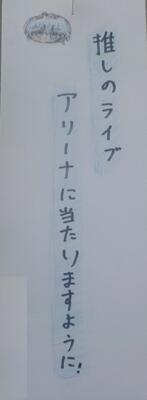 推しのライブ
アリーナに当たりますように!